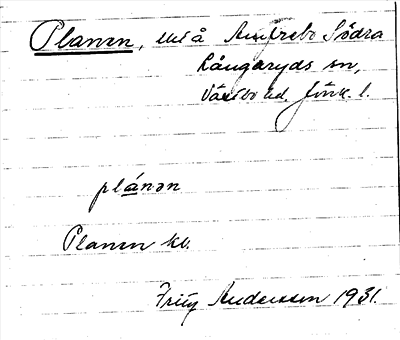 Planen, urå Arnfrebo Södra
Långaryds sn,
Västbo hd. Jönk. l.
plánən
Planen kv.
Fritz Andersson 1931.